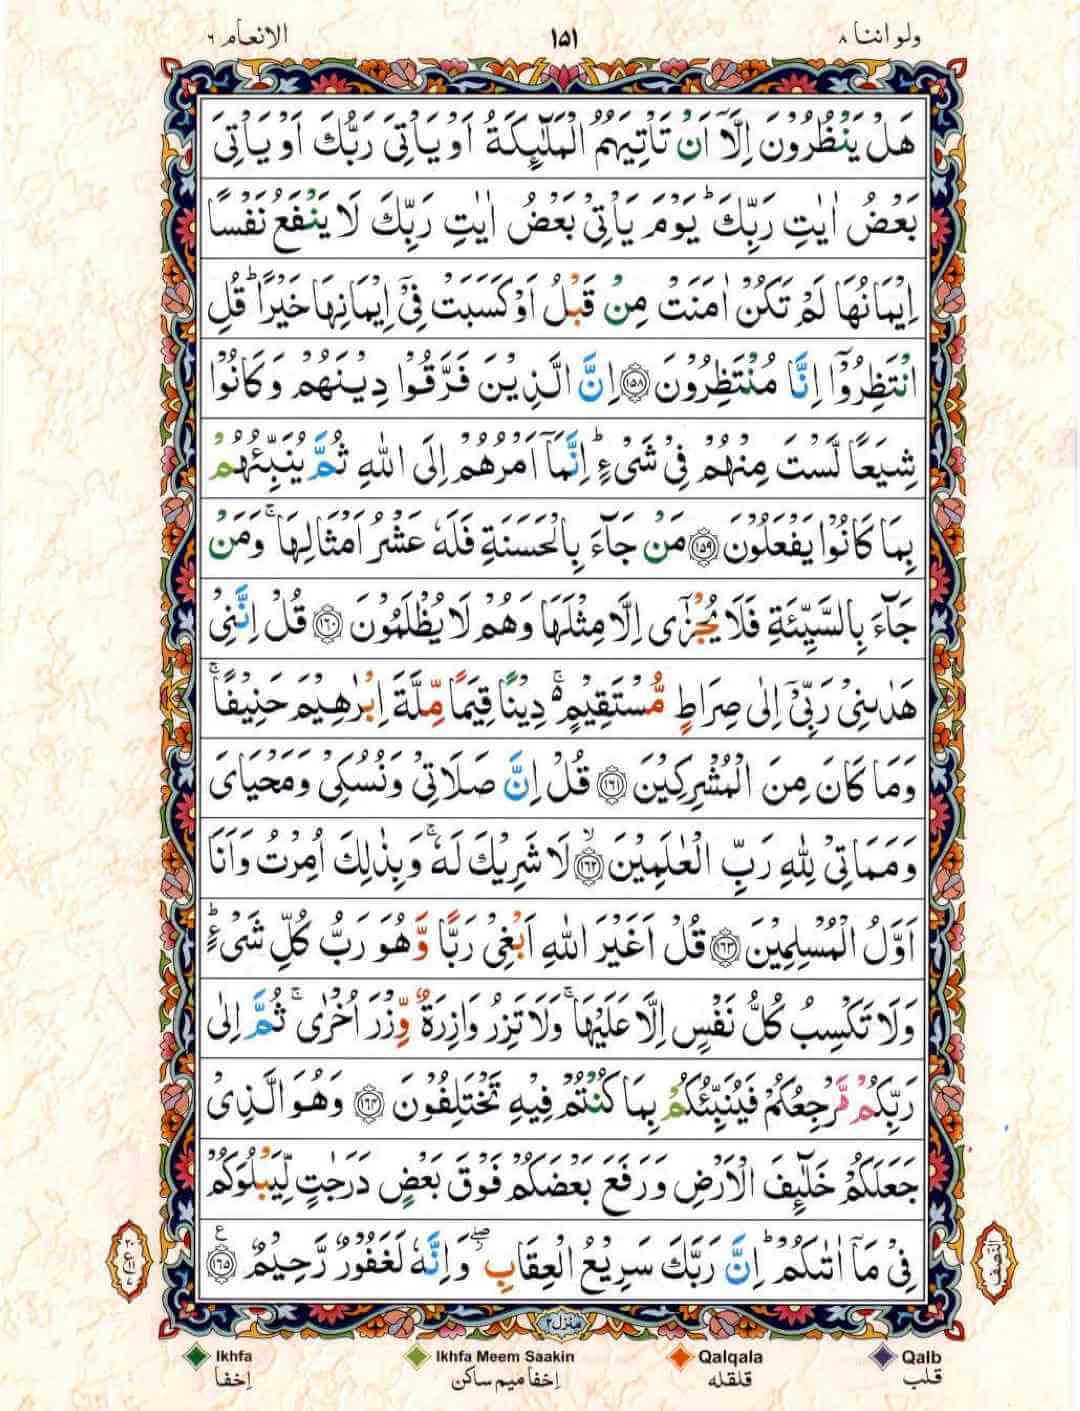 ولو اننا ٨ ١٥١ الانعام ٦
هَلْ يَنْظُرُوْنَ اِلَّاۤ اَنْ تَاْتِيَهُمُ الْمَلٰٓئِكَةُ اَوْ يَاْتِيَ رَبُّكَ اَوْ يَاْتِيَ
بَعْضُ اٰيٰتِ رَبِّكَ ؕ يَوْمَ يَاْتِيْ بَعْضُ اٰيٰتِ رَبِّكَ لَا يَنْفَعُ نَفْسًا
اِيْمَانُهَا لَمْ تَكُنْ اٰمَنَتْ مِنْ قَبْلُ اَوْ كَسَبَتْ فِيْۤ اِيْمَانِهَا خَيْرًا ؕ قُلِ
انْتَظِرُوْۤا اِنَّا مُنْتَظِرُوْنَ ﴿۱۵۸﴾ اِنَّ الَّذِيْنَ فَرَّقُوْا دِيْنَهُمْ وَكَانُوْا
شِيَعًا لَّسْتَ مِنْهُمْ فِيْ شَيْءٍ ؕ اِنَّمَاۤ اَمْرُهُمْ اِلَى اللّٰهِ ثُمَّ يُنَبِّئُهُمْ
بِمَا كَانُوْا يَفْعَلُوْنَ ﴿۱۵۹﴾ مَنْ جَآءَ بِالْحَسَنَةِ فَلَهٗ عَشْرُ اَمْثَالِهَا ۚ وَمَنْ
جَآءَ بِالسَّيِّئَةِ فَلَا يُجْزٰۤى اِلَّا مِثْلَهَا وَهُمْ لَا يُظْلَمُوْنَ ﴿۱۶۰﴾ قُلْ اِنَّنِيْ
هَدٰىنِيْ رَبِّيْۤ اِلٰى صِرَاطٍ مُّسْتَقِيْمٍ ۚ۬ دِيْنًا قِيَمًا مِّلَّةَ اِبْرٰهِيْمَ حَنِيْفًا ۚ
وَمَا كَانَ مِنَ الْمُشْرِكِيْنَ ﴿۱۶۱﴾ قُلْ اِنَّ صَلَاتِيْ وَنُسُكِيْ وَمَحْيَايَ
وَمَمَاتِيْ لِلّٰهِ رَبِّ الْعٰلَمِيْنَ ۙ﴿۱۶۲﴾ لَا شَرِيْكَ لَهٗ ۚ وَبِذٰلِكَ اُمِرْتُ وَاَنَا
اَوَّلُ الْمُسْلِمِيْنَ ﴿۱۶۳﴾ قُلْ اَغَيْرَ اللّٰهِ اَبْغِيْ رَبًّا وَّهُوَ رَبُّ كُلِّ شَيْءٍ ؕ
وَلَا تَكْسِبُ كُلُّ نَفْسٍ اِلَّا عَلَيْهَا ۚ وَلَا تَزِرُ وَازِرَةٌ وِّزْرَ اُخْرٰى ۚ ثُمَّ اِلٰى
رَبِّكُمْ مَّرْجِعُكُمْ فَيُنَبِّئُكُمْ بِمَا كُنْتُمْ فِيْهِ تَخْتَلِفُوْنَ ﴿۱۶۴﴾ وَهُوَ الَّذِيْ
جَعَلَكُمْ خَلٰٓئِفَ الْاَرْضِ وَرَفَعَ بَعْضَكُمْ فَوْقَ بَعْضٍ دَرَجٰتٍ لِّيَبْلُوَكُمْ
فِيْ مَاۤ اٰتٰىكُمْ ؕ اِنَّ رَبَّكَ سَرِيْعُ الْعِقَابِ ۖؗ وَاِنَّهٗ لَغَفُوْرٌ رَّحِيْمٌ ﴿۱۶۵﴾ ع
النصف
منزل ٢
Ikhfa Ikhfa Meem Saakin Qalqala Qalb
اِخفا اِخفا میم ساکن قلقله قلب